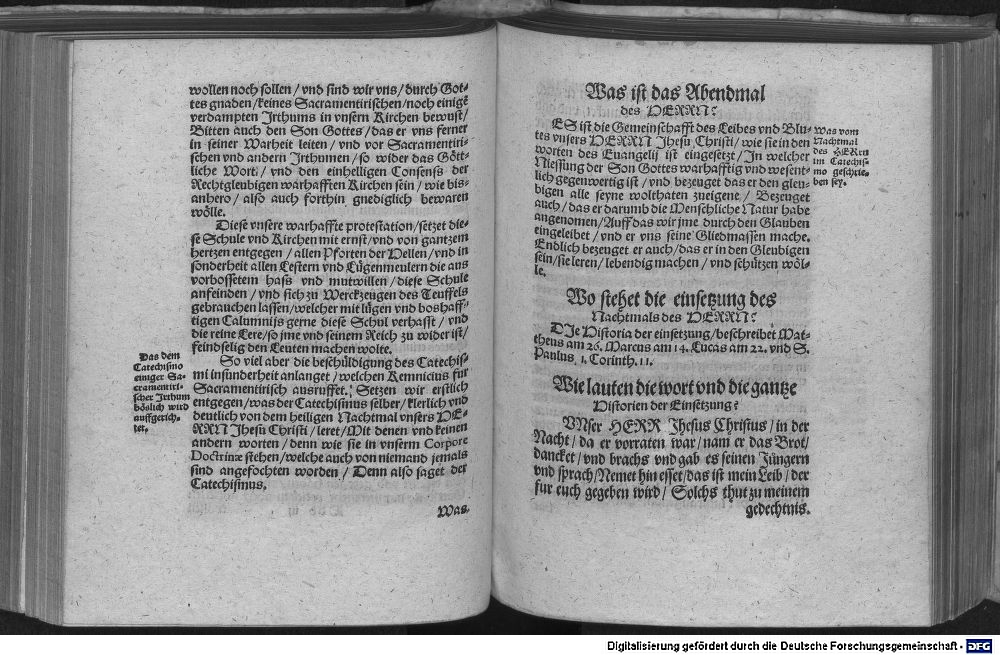 wollen noch sollen / vnd sind wir vns / durch Got-
tes gnaden / keines Sacramentirischen / noch einigẽ
verdampten Irthums in vnsern Kirchen bewust /
Bitten auch den Son Gottes / das er vns ferner
in seiner Warheit leiten / vnd vor Sacramentiri-
schen vnd andern Irthumen / so wider das Gött-
liche Wort / vnd den einhelligen Consenß der
Rechtgleubigen warhafften Kirchen sein / wie bis-
anhero / also auch forthin gnediglich bewaren
wölle.
Diese vnsere warhaffte protestation / setzet die-
se Schule vnd Kirchen mit ernst / vnd von gantzem
hertzen entgegen / allen Pforten der Hellen / vnd in
sonderheit allen Lestern vnd Lügenmeulern die aus
vorbossetem haß vnd mutwillen / diese Schule
anfeinden / vnd sich zu Werckzeugen des Teuffels
gebrauchen lassen / welcher mit lügen vnd boshaff-
tigen Calumnijs gerne diese Schul verhasst / vnd
die reine Lere / so jme vnd seinem Reich zu wider ist /
feindselig den Leuten machen wolte.
So viel aber die beschüldigung des Catechis-
mi insünderheit anlanget / welchen Kemnicius fur
Sacramentirisch ausruffet. Setzen wir erstlich
entgegen / was der Catechismus selber / klerlich vnd
deutlich von dem heiligen Nachtmal vnsers HE-
RRN Jhesu Christi / leret / Mit denen vnd keinen
andern worten / denn wie sie in vnserm Corpore
Doctrinæ stehen / welche auch von niemand jemals
sind angefochten worden / Denn also saget der
Catechismus.
Das dem
Catechismo
einiger Sa-
cramentiri-
scher Irthum
böslich wird
auffgerich-
tet.
Was
Was ist das Abendmal
des HERRN?
ES ist die Gemeinschafft des Leibes vnd Blu-
tes vnsers HERRN Jhesu Christi / wie sie in den
worten des Euangelij ist eingesetzt / In welcher
Niessung der Son Gottes warhafftig vnd wesent-
lich gegenwertig ist / vnd bezeuget das er den gleu-
bigen alle seyne wolthaten zueigene / Bezeuget
auch / das er darumb die Menschliche Natur habe
angenomen / Auff das wir jme durch den Glauben
eingeleibet / vnd er vns seine Gliedmassen mache.
Endlich bezeuget er auch / das er in den Gleubigen
sein / sie leren / lebendig machen / vnd schützen wöl-
le.
Was vom
Nachtmal
des HERrn
im Catechis-
mo geschrie-
ben sey.
Wo stehet die einsetzung des
Nachtmals des HERRN?
DIe Historia der einsetzung / beschreibet Mat-
theus am 26. Marcus am 14. Lucas am 22. vnd S.
Paulus. 1. Corinth. 11.
Wie lauten die wort vnd die gantze
Historien der Einsetzung?
VNser HERR Jhesus Christus / in der
Nacht / da er vorraten war / nam er das Brot /
dancket / vnd brachs vnd gab es seinen Jüngern
vnd sprach / Nemet hin esset / das ist mein Leib / der
fur euch gegeben wird / Solchs thut zu meinem
gedechtnis.
Digitalisierung gefördert durch die Deutsche Forschungsgemeinschaft - DFG